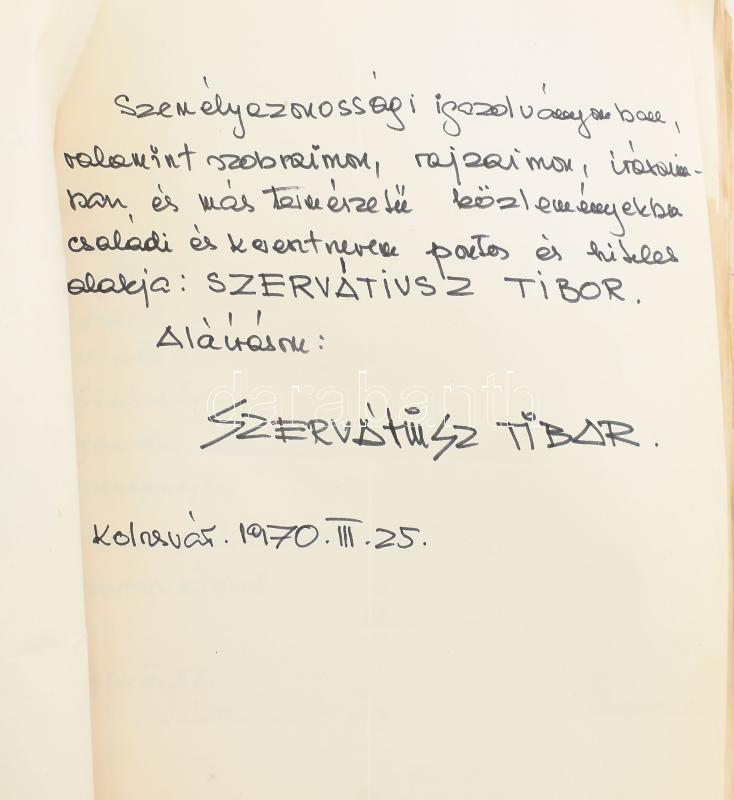 Személyazonossági igazolványomban,
valamint szobraimon, rajzaimon, írásaim-
ban, és más természetű közleményekben
családi és keresztnevem pontos és hiteles
alakja: SZERVÁTIUSZ TIBOR.
Aláírásom:
darabanth
SZERVÁTIUSZ TIBOR.
Kolozsvár. 1970. III. 25.